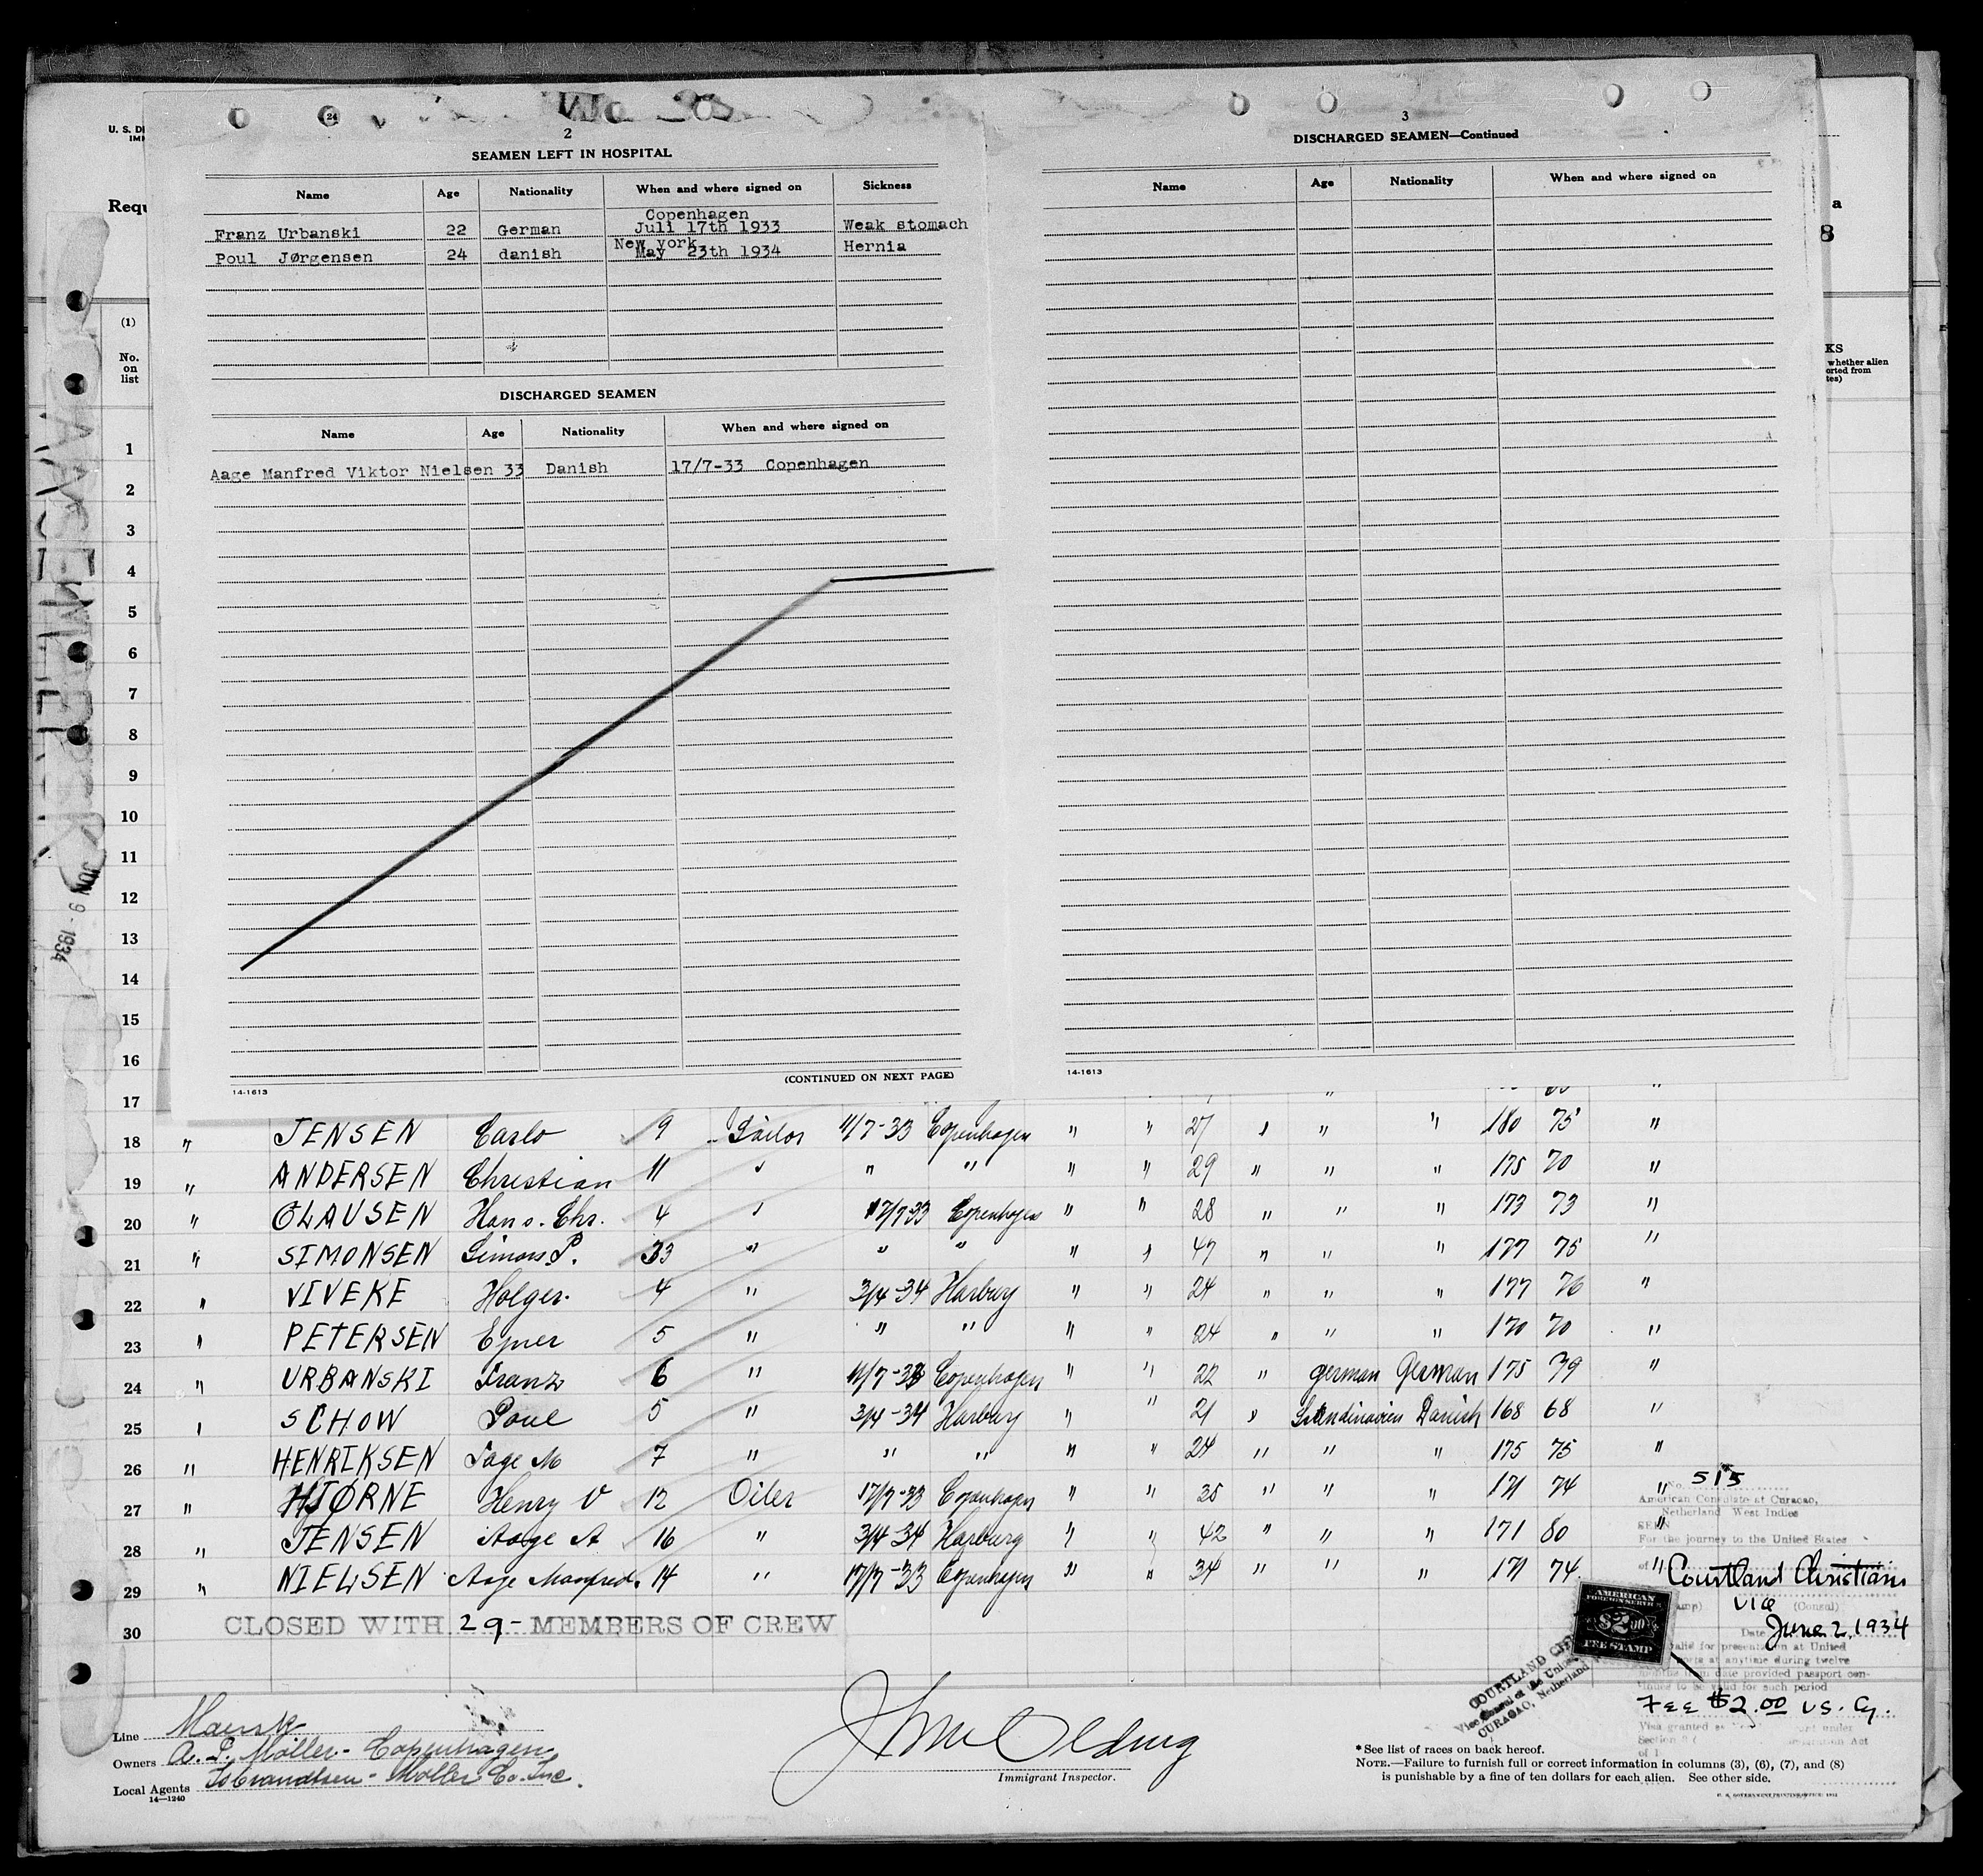 24
2
SEAMEN LEFT IN HOSPITAL
Name Age Nationality When and where signed on Sickness
Copenhagen
Franz Urbanski 22 German Juli 17th 1933 Weak stomach
New york
Poul Jørgensen 24 danish May 23th 1934 Hernia
DISCHARGED SEAMEN
Name Age Nationality When and where signed on
Aage Manfred Viktor Nielsen 33 Danish 17/7-33 Copenhagen
(CONTINUED ON NEXT PAGE)
14-1613
3
DISCHARGED SEAMEN—Continued
Name Age Nationality When and where signed on
14-1613
U. S. D
IM
Requ
a
8
(1)
No.
on
list
KS
whether alien
orted from
tes)
1
2
3
4
5
6
7
8
9
10
11
12
13
14
15
16
17
JUN 9 - 1934
18 " JENSEN Carlo 9 Sailor 11/7-33 Copenhagen " " 27 " " " 180 75 "
19 " ANDERSEN Christian 11 " " " " " 29 " " " 175 70 "
20 " CLAUSEN Hans. Chr. 4 " 17/7 33 Copenhagen " " 28 " " " 173 73 "
21 " SIMONSEN Simon P. 33 " " " " " 47 " " " 177 75 "
22 " VIVEKE Holger. 4 " 3/4-34 Harburg " " 24 " " " 177 76 "
23 " PETERSEN Ejner 5 " " " " " 24 " " " 170 70 "
24 " URBANSKI Franz 6 " 11/7-33 Copenhagen " " 22 " german German 175 79 "
25 " SCHOW Poul 5 " 3/4-34 Harburg " " 21 " Skandinavien Danish 168 68 "
26 " HENRIKSEN Tage M 7 " " " " " 24 " " " 175 75 "
27 " HJØRNE Henry V 12 Oiler 17/7-33 Copenhagen " " 35 " " " 171 74 "
28 " JENSEN Aage A 16 " 3/4-34 Harburg " " 42 " " " 171 80 "
29 " NIELSEN Aage Manfred. 14 " 17/7-33 Copenhagen " " 34 " " " 171 74. "
30 CLOSED WITH 29- MEMBERS OF CREW
No. 515
American Consulate at Curaçao,
Netherland West Indies
SEEN
For the journey to the United States
of
Courtland Christiani
Vice (Consul)
Date June 2, 1934
valid for presentation at United
ports at anytime during twelve
months from date provided passport con-
tinues to be valid for such period
Fee $2.00 U.S. Cy.
Visa granted
Section 3
of 1
AMERICAN
FOREIGN SERVICE
$2.00
FEE STAMP
COURTLAND
Vice Consul of the United
CURAÇAO, Netherland
Line Maersk
Owners A. P. Möller - Copenhagen
Local Agents Isbrandtsen - Moller Co. Inc.
14—1240
Immigrant Inspector.
*See list of races on back hereof.
NOTE.—Failure to furnish full or correct information in columns (3), (6), (7), and (8)
is punishable by a fine of ten dollars for each alien. See other side.
U. S. GOVERNMENT PRINTING OFFICE